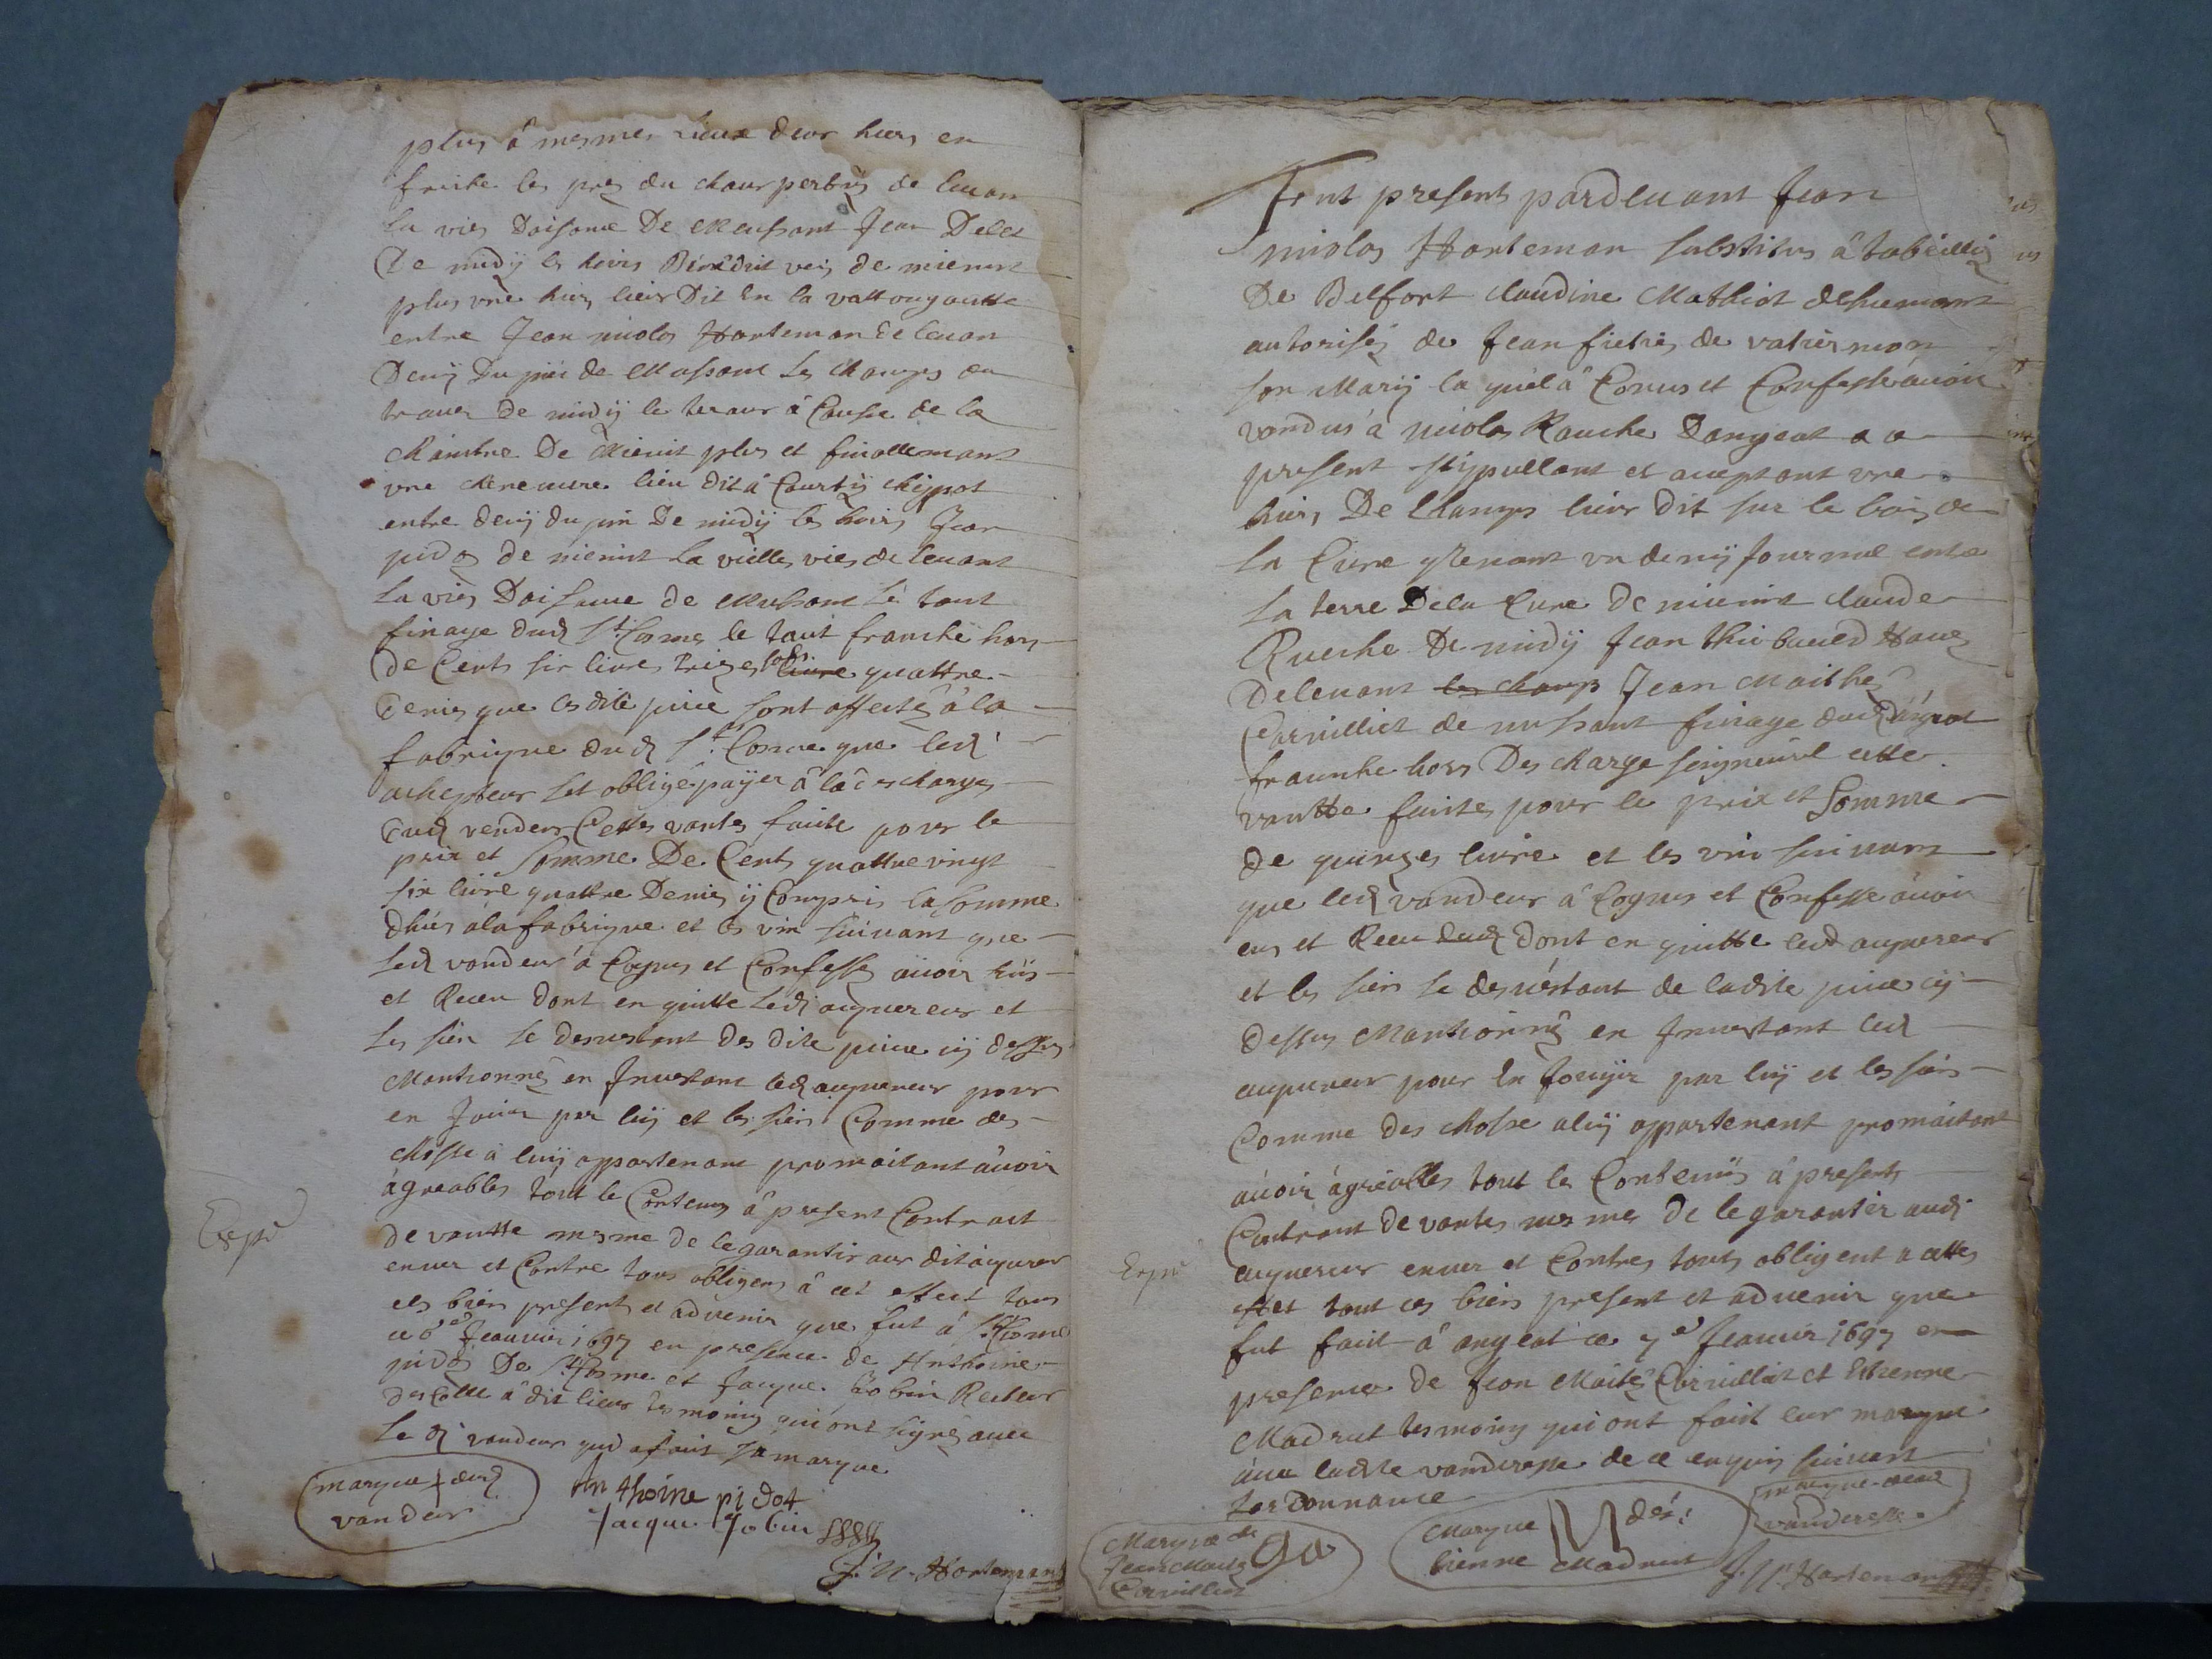 plus â mesmes lieux deux hiers en
friche les prez du chaux perbûs de levan
la vies Doisonne De Meussant Jean Delet
De midÿ les hoirs Benedict veis de mienut
plus vne hiers lieux Dit En la vattougoutte
entre Jean nicolas Horteman de levan
Denÿ Du pin de Mussant les champs du
traver De midÿ le teraux â Cause de la
Chambre De Mienit plus et finallemant
vne cheneuiere lieu dit â Courtÿ chippot
entre denÿ du pin De midÿ les hoirs Jean
pidoz de mienut la vielles vies de leuant
la viès Doisonne de Mussant le tout
finage dud St. Cosmes le tout franche hors
de Cents six liures treizes sols liure quattre
deniez que lesdite piece sont affectéz â la
fabrique dud St. Cosme que led
achepteur set obligé payer â la descharges
dud vendeur Cettes vantes faicte pour le
prix et Somme De Cents quattre vingt
six liure quattre Deniez ÿ Compris la somme
dhües â la fabrique et les vin suiuant que
led vandeur â Cognus et Confesse auoir hüs
et Receu dont en quitte ledi acquereur et
les sien se desvestant des dite piece cÿ dessus
Mantionnéz en Jnvestant led acquereur pour
en Jouir par luÿ et les siens Comme des
chosse â luÿ appartenant promaitant âuoir
âgreables tout le Contenus â present Contract
de vantte mesme de le garantir aux dit acquereur
enuer et Contre tous obligent â cet effect tous
ces bien presents et advenir que fut â St. Cosme
ce 6e Jeanvier 1697 en presence de Anthoine
pidoz De St. Cosme et Jacque Gobin Recteur
descolle â dit lieux tesmoins qui ont signéz auec
le di vandeur qud a faict sa marque
Expé
marque + dud
vandeur
An thoine pidot
Jacque Gobin
J: N. Horteman
Sont presents pardeuant Jean
nicolas Horteman substitus â tabeilliõ
De Belfort claudine Mathiot dehumont
autoriséz de Jean fietiéz de vatiermon
son Marÿ la quel â Conus et Confesser auoir
vandus â nicolas Rouche Dangeot a ce
present stÿpullant et aceptant vne
hiers De Champs lieux dit sur le bois de
la Cure Prenant vn demÿ Journal entre
la terre De la Cure de mienut claude
Rueche De midÿ Jean thiebaued Hauz
Deleuant les champs Jean Maithe
Coruilliet de mussant finage dud Angeot
franche hors Des charge seigneurial cette
vantte faictes pour le prix et Somme
de quinzes liure et les vin suiuant
que led vandeur â Cognus et Confesse auoir
eus et Receu dud dont en quitte led acquereur
et les sien se desvéstant de ladite piece cÿ
dessus Mantionnéz en Jnvestant led
acquereur pour En Jouÿir par luÿ et les siens
Comme des chosse a luÿ appartenant promaitant
auoir âgreables tout les Contenüs â present
Contract de vantes mesmes de le garantir audi
acquereur enuer et Contres touts obligent a cettes
effet tout ces biens present et advenir que
fut faict â angeot ce 7e Jeanvier 1697 en
presence de Jean Maite Coruilliet et Etienne
Madrut tesmoins qui ont faict eur marque
auec ladite vanderesse de ce enquis suiuant
lordonnance
Expé
Marque de
Jean Maite
Coruilliet
Marque des:
tienne Madrut
marque de la
vanderesse
J. N: Horteman